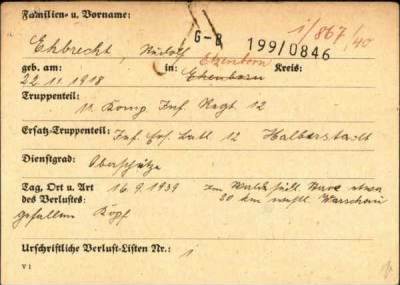 Familien- u. Vorname:
Ehbrecht, Rudolf
G-B
199/0846
1/867/40
geb. am: in: Etzenborn Kreis:
22.11.1918 Etzenborn
Truppenteil:
11. Komp. Inf. Regt. 12
Ersatz-Truppenteil: Inf. Ers. Batl. 12 Halberstadt
Dienstgrad: Oberschütze
Tag, Ort u. Art 16.9.1939 am Walde südl. etwa
des Verlustes: 30 km westl. Warschau
gefallen Kopf
Urschriftliche Verlust-Listen Nr.: 1
V 1